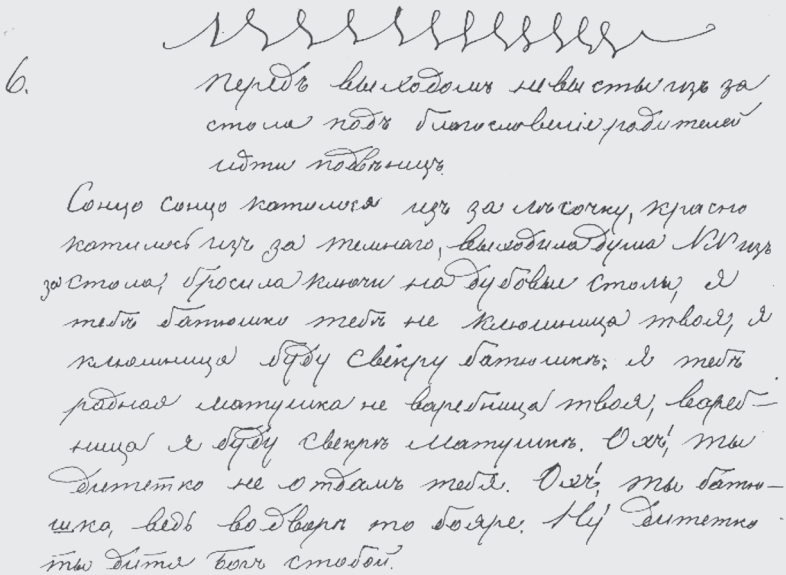 6.
Передъ выходомъ невѣсты изъ за
стола подъ благословеніе родителей
идти подвѣницъ.
Сонцо сонцо катилося изъ за лѣсочку, красно
катилось изъ за темнаго, выходила душа NN изъ
за стола, бросила ключи на дубовые столы, я
тебѣ батюшко тебѣ не клюшница твоя, я
клюшница буду свекру батюшкѣ; я тебѣ
родная матушка не варебница твоя, вареб-
ница я буду свекрѣ матушкѣ. Охъ! ты
дитетко не отдамъ тебя. Охъ! ты батю-
шка, ведь во дворѣ то бояре. Ну дитетко
ты дитя Богъ стобой.